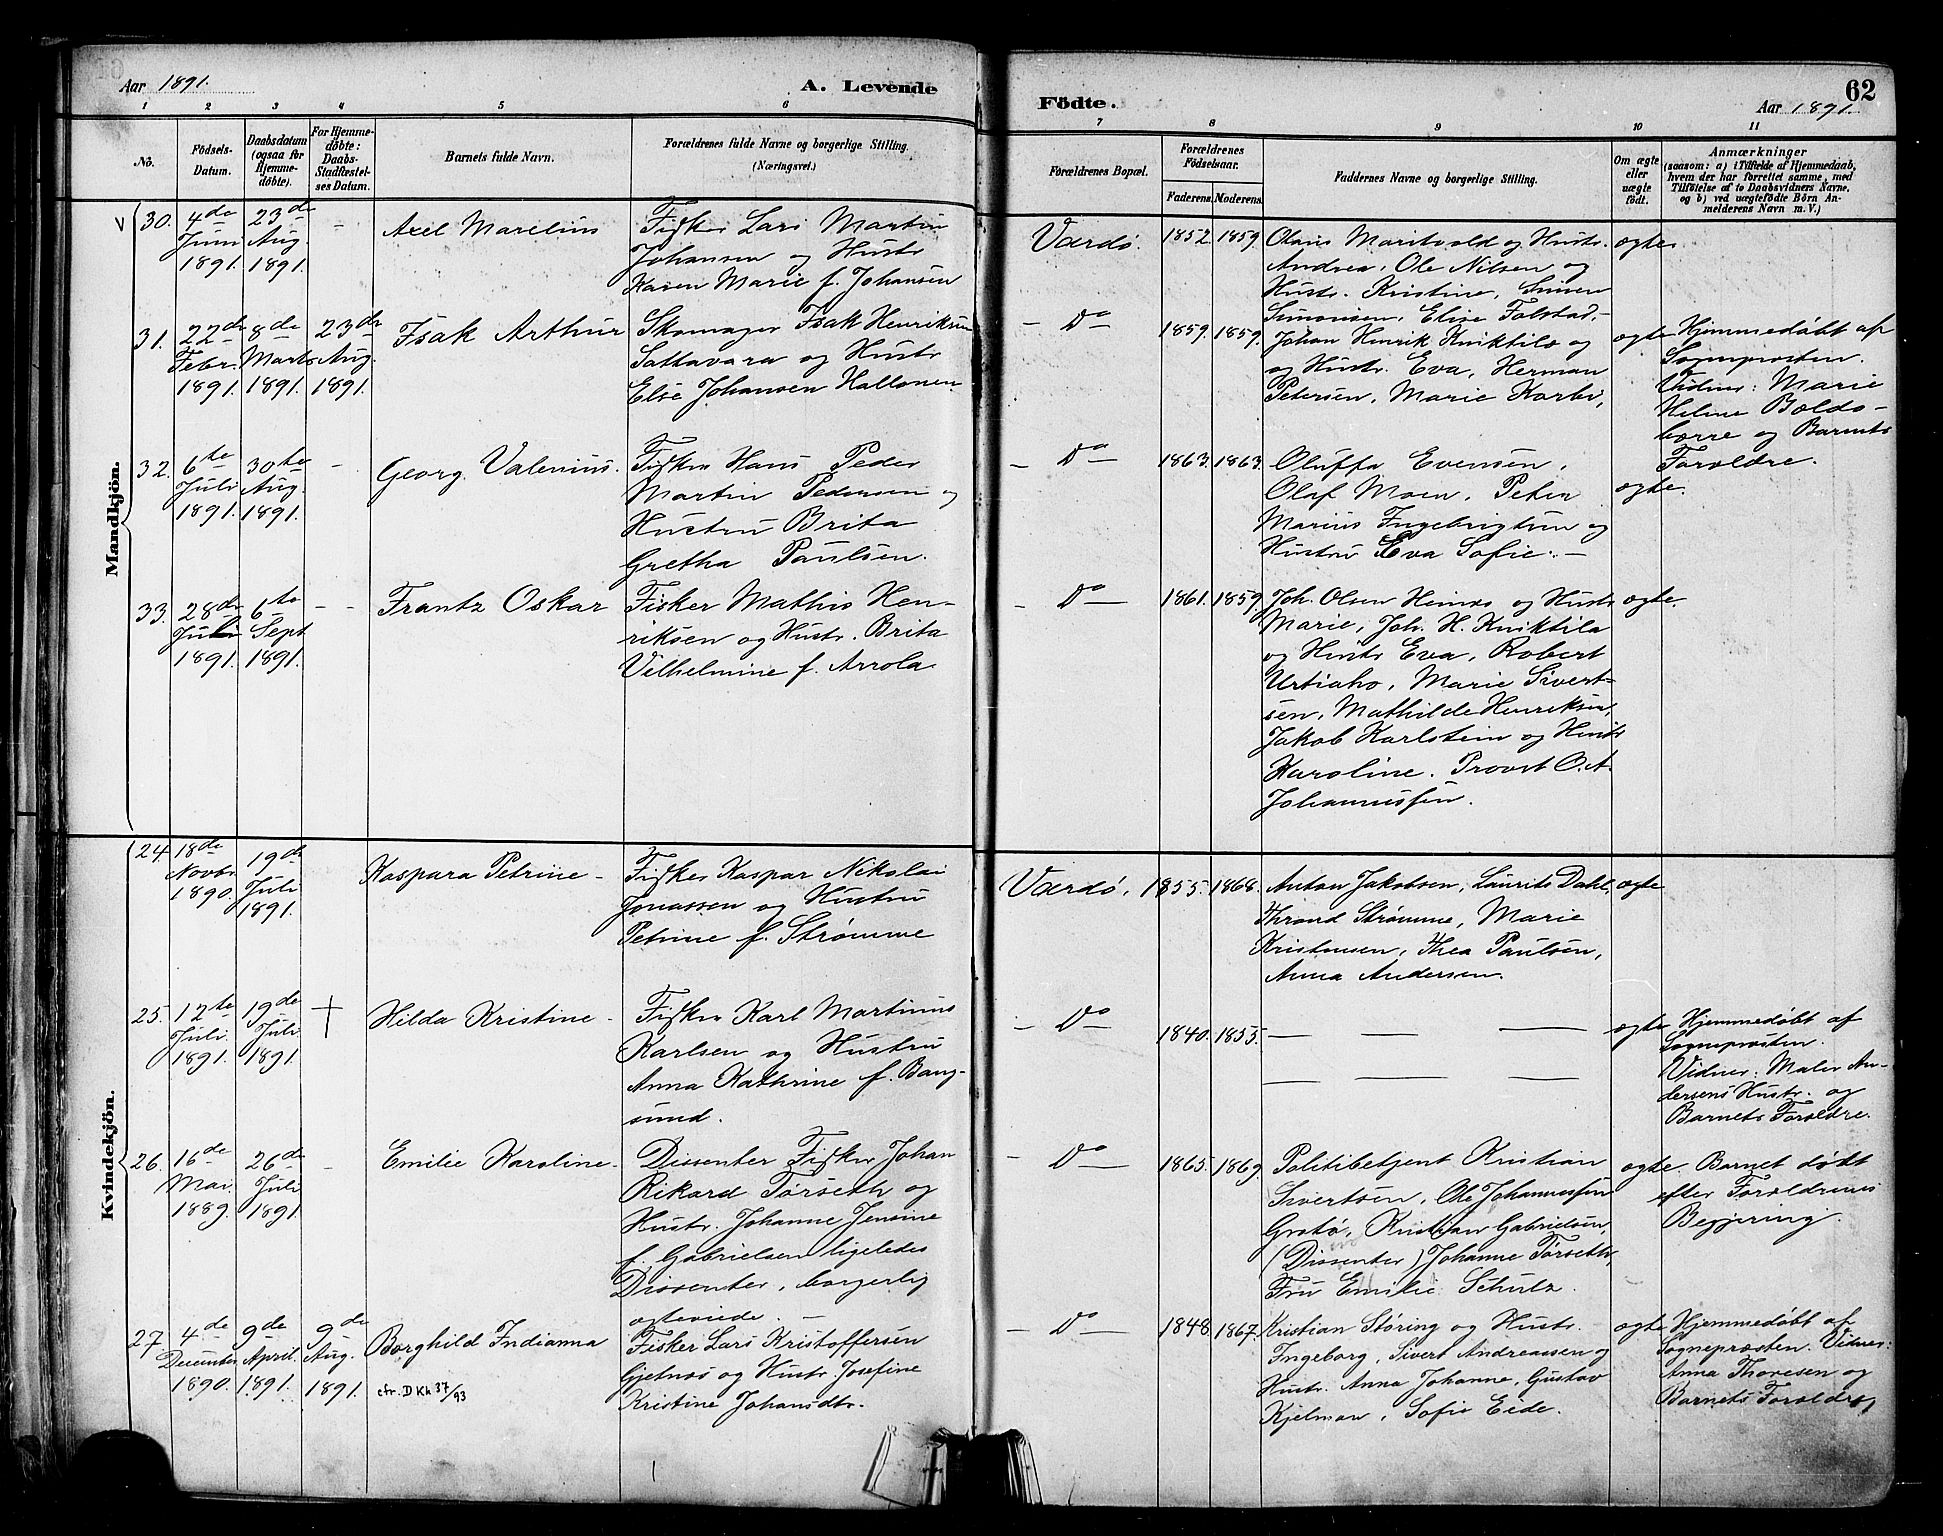 Aar 1891.
A. Levende
Födte.
62
Aar 1891.
1 2 3 4 5 6 7 8 9 10 11
No.
Födsels-
Datum.
Daabsdatum
(ogsaa for
Hjemme-
döbte).
For Hjemme-
döbte:
Daabs-
Stadfæstel-
ses Datum.
Barnets fulde Navn.
Forældrenes fulde Navne og borgerlige Stilling.
(Næringsvei.)
Forældrenes Bopæl.
Forældrenes
Födselsaar.
Faderens. Moderens.
Faddernes Navne og borgerlige Stilling.
Om ægte
eller
uægte
födt.
Anmærkninger
(saasom: a) i Tilfælde af Hjemmedaab,
hvem der har forrettet samme, med
Tilföielse af to Daabsvidners Navne,
og b) ved uægtefödte Börn An-
melderens Navn m. V.)
Mandkjön.
V 30. 4de
Juni
1891.
23de
Aug.
1891.
-
Axel Marelius
Fisker Lars Martin
Johansen og Hustr
Karen Marie f. Johansen
Vardø.
1852. 1859.
Olaus Maritvold og Hustr.
Andrea, Ole Nilsen og
Hustr. Kristine, Simen
Simonsen, Elise Falstad.
ægte.
31. 22de
Febr.
1891.
8de
Marts
1891.
23de
Aug.
1891.
Isak Arthur
Skomager Isak Henriksen
Sattavara og Hustr
Else Johansen Hallonen
- Do -
1859. 1859.
Johan Henrik Kniktilo og
og Hustr. Eva, Herman
Petersen, Marie Korbi,
ægte
Hjemmedøbt af
Sognepræsten.
Vidner: Marie
Helene Boldo-
borre og Barnets
Forældre.
32. 6te
Juli
1891.
30te
Aug.
1891.
-
Georg Valenius.
Fisker Hans Peder
Martin Pedersen og
Hustru Brita
Gretha Paulsen.
- Do -
1863. 1863.
Oluffa Evensen,
Olaf Moen, Peter
Marius Ingebrigtsen og
Hustru Eva Sofie. -
ægte.
33. 28de
Juli
1891.
6te
Sept
1891.
- -
Frantz Oskar
Fisker Mathis Hen-
riksen og Hustr. Brita
Vilhelmine f. Arrola
- Do -
1861. 1859.
Joh. Olsen Heinæs og Hustr
Marie, Joh. H. Kniktila
og Hustr Eva, Robert
Urtiaho, Marie Sivert-
sen, Mathilde Henriksen,
Jakob Karlstein og Hustr
Karoline. Provst O. A.
Johannessen.
ægte.
Kvindekjön.
24. 18de
Novbr
1890.
19de
Juli
1891.
Kaspara Petrine -
Fisker Kaspar Nikolai
Jonassen og Hustru
Petrine f. Strømme
Vardø.
1855. 1868.
Anton Jakobsen, Laurits Dahl,
Thrond Strømme, Marie
Kristensen, Thea Paulsen,
Anna Andersen.
ægte
25. 12te
Juli
1891.
19de
Juli
1891.
†
Hilda Kristine -
Fisker Karl Martinus
Karlsen og Hustru
Anna Kathrine f. Bang-
sund.
- Do -
1840. 1855.
— — —
— — —
ægte
Hjemmedøbt af
Sognepræsten.
Vidner: Maler An-
dersens Hustr. og
Barnets Forældre.
26. 16de
Mai
1889.
26de
Juli
1891.
-
Emilie Karoline -
Dissenter Fisker Johan
Rikard Tørseth og
Hustr. Johanne Jensine
f. Gabrielsen ligeledes
Dissenter, borgerlig
ægteviede. -
- Do -
1865. 1869.
Politibetjent Kristian
Sivertsen, Ole Johannessen
Grotø, Kristian Gabrielsen,
(Dissenter) Johanne Tørseth,
Fru Emilie Schulz.
ægte
Barnet døbt
efter Forældrenes
Begjering.
27. 4de
December
1890.
9de
April.
1891.
9de
Aug.
1891.
Borghild Indianna
cfr. D Kh 37/93
Fisker Lars Kristoffersen
Gjetnøs og Hustr. Josefine
Kristine Johansdtr.
- Do -
1848. 1867.
Kristian Støring og Hustr.
Ingeborg, Sivert Andreassen og
Hustr. Anna Johanne, Gustav
Kjelman, Sofie Eide.
ægte
Hjemmedøbt af
Sognepræsten. Vidner:
Anna Thoresen og
Barnets Forældre